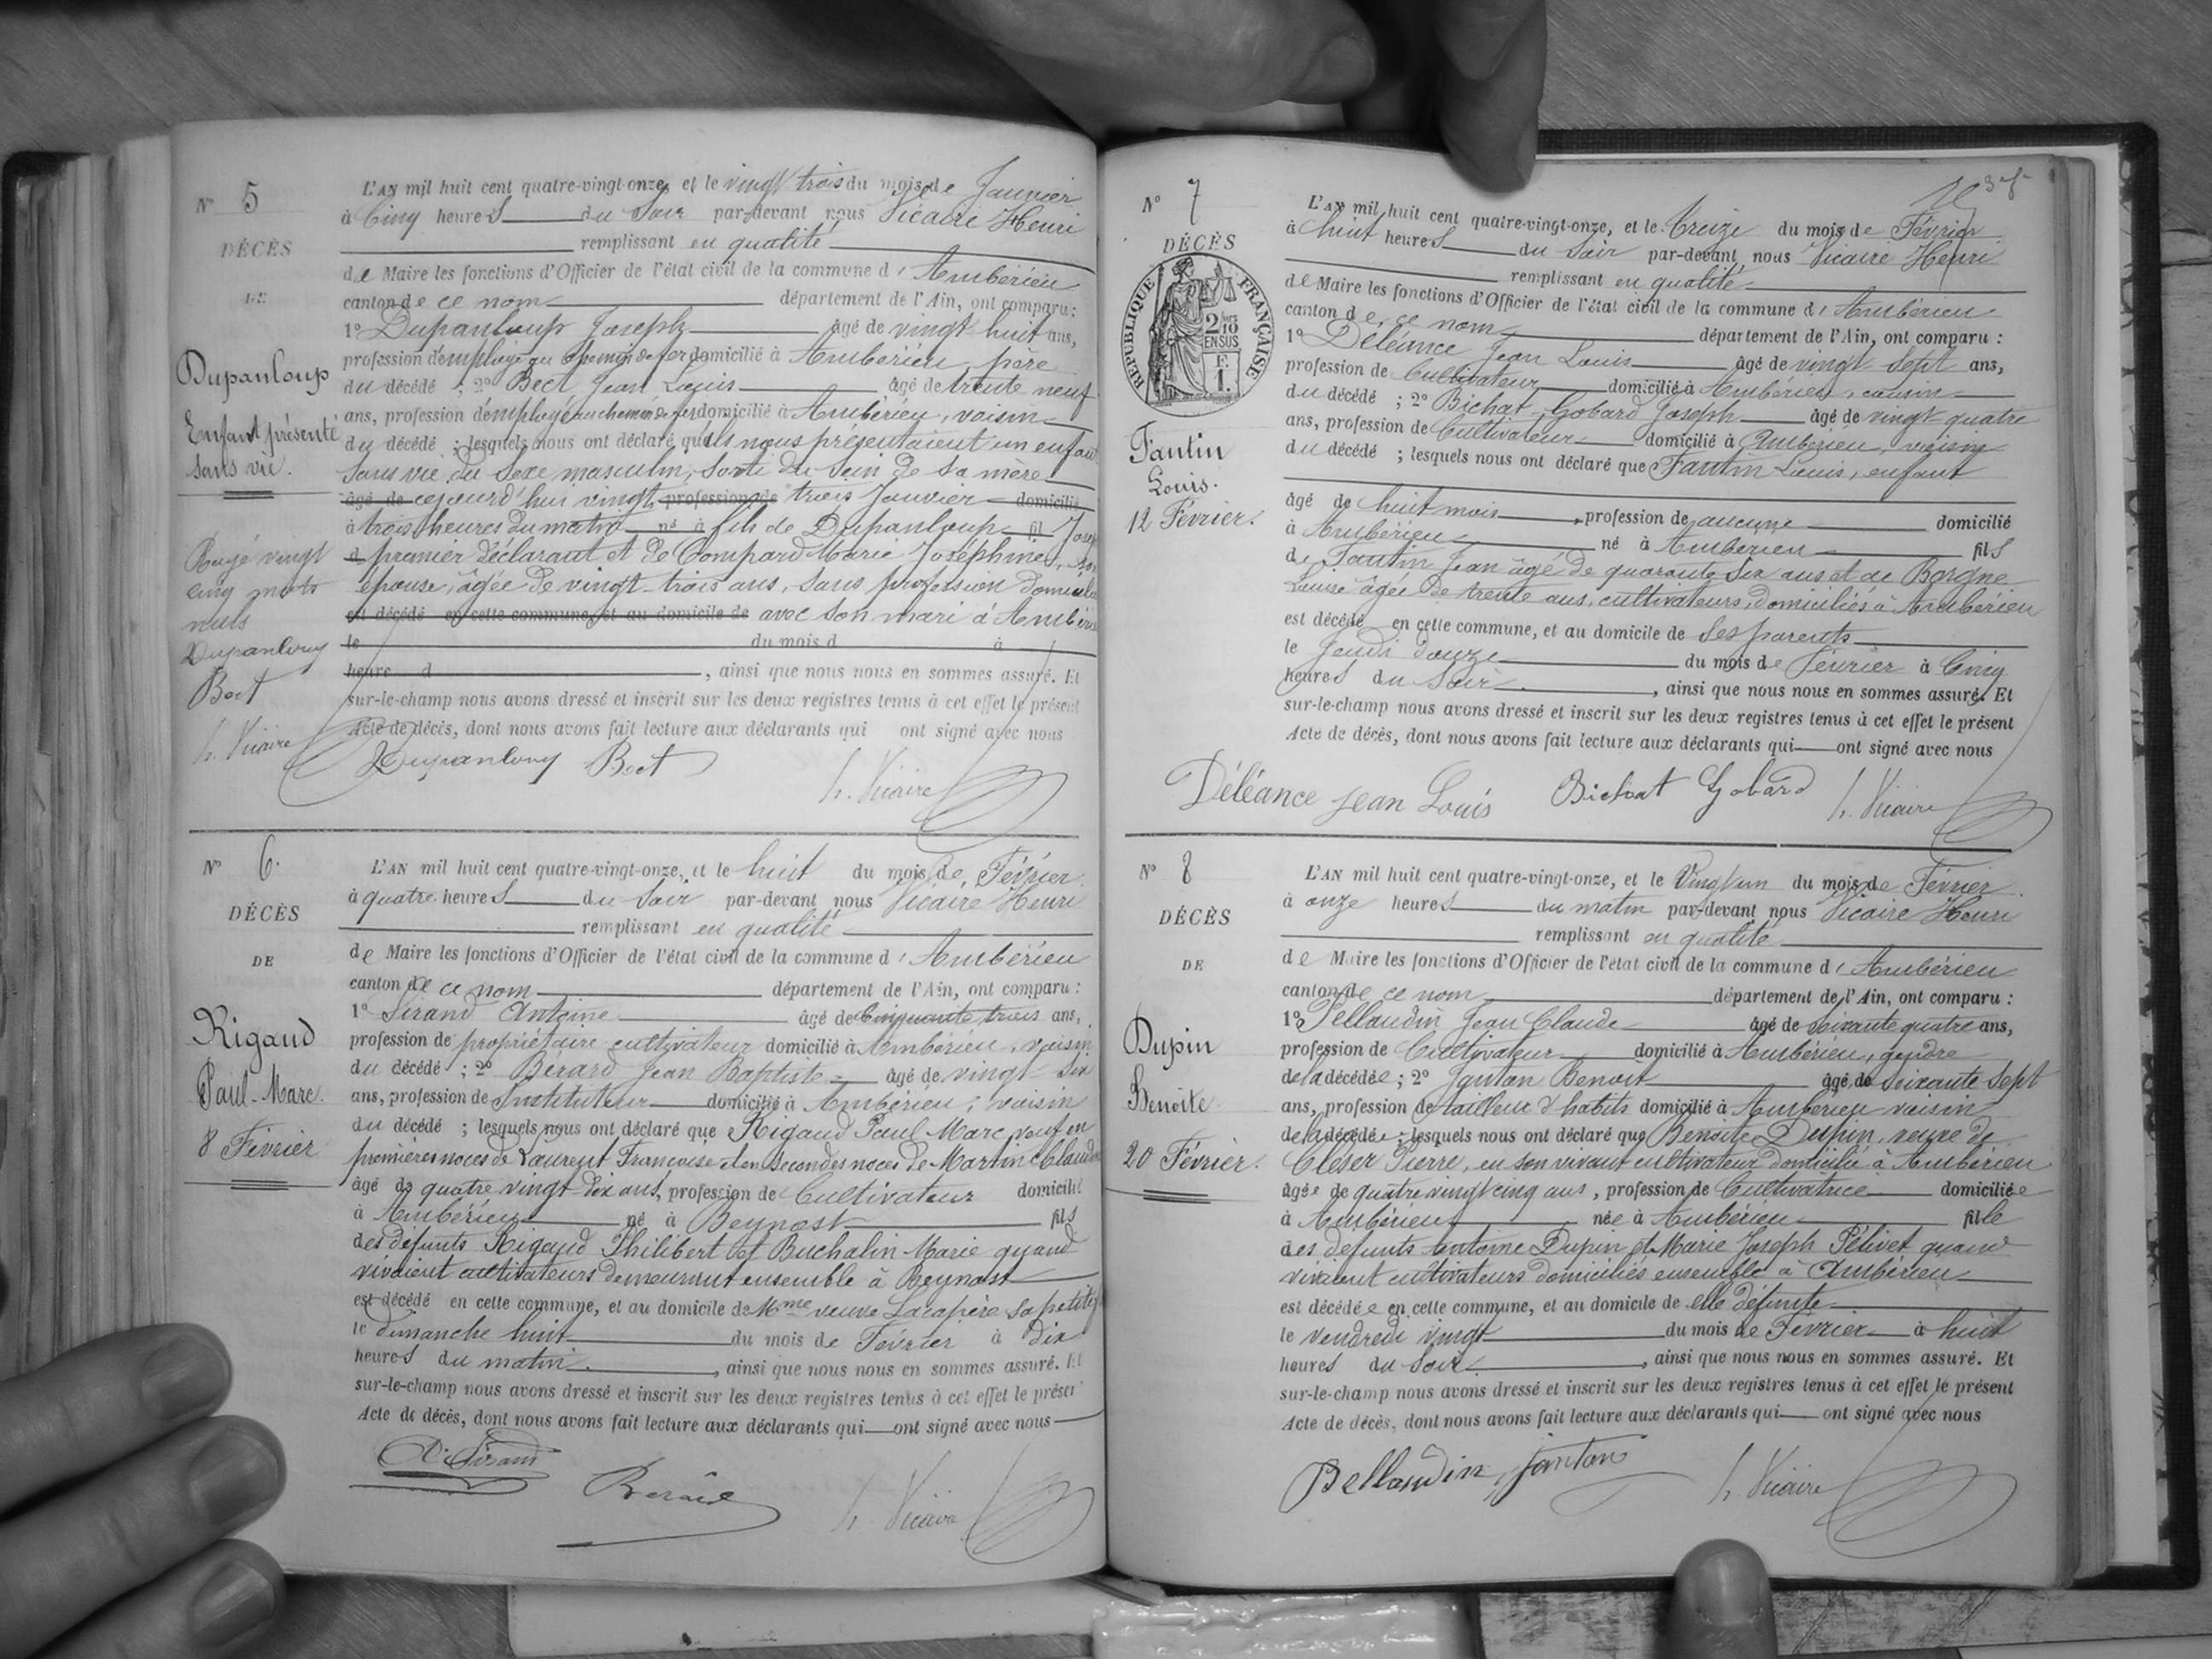 N° 5
DÉCÈS
DE
Dupanloup
Enfant présenté
sans vie.
Rayé vingt
cinq mots
nuls
Dupanloup
Bect
h. Vicaire
L'AN mil huit cent quatre-vingt-onze, et le vingt trois du mois de Janvier
à Cinq heures du Soir par-devant nous Vicaire Henri
remplissant en qualité
de Maire les fonctions d'Officier de l'état civil de la commune d'Ambérieu
canton de ce nom département de l'Ain, ont comparu :
1° Dupanloup Joseph âgé de vingt huit ans,
profession d'employé au chemin de fer domicilié à Ambérieu, père
du décédé ; 2° Bect Jean Louis âgé de trente neuf
ans, profession d'employé au chemin de fer domicilié à Ambérieu, voisin
du décédé ; lesquels nous ont déclaré qu'ils nous présentaient un enfant
sans vie du Sexe masculin, Sorti du Sein de Sa mère
âgé de cejourd'hui vingt profession de trois Janvier domicilié
à trois heures du matin né à fils de Dupanloup fil
premier déclarant et de Compard Marie Joséphine, son
épouse, âgée de vingt-trois ans, sans profession
est décédé en cette commune, et au domicile de avec son mari à
le du mois d à
heure d , ainsi que nous nous en sommes assuré. Et
sur-le-champ nous avons dressé et inscrit sur les deux registres tenus à cet effet le présent
Acte de décès, dont nous avons fait lecture aux déclarants qui ont signé avec nous
Dupanloup Bect h. Vicaire
N° 6.
DÉCÈS
DE
Rigaud
Paul-Marc.
8 Février
L'AN mil huit cent quatre-vingt-onze, et le huit du mois de Février
à quatre heures du Soir par-devant nous Vicaire Henri
remplissant en qualité
de Maire les fonctions d'Officier de l'état civil de la commune d'Ambérieu
canton de ce nom département de l'Ain, ont comparu :
1° Sirand Antoine âgé de Cinquante trois ans,
profession de propriétaire cultivateur domicilié à Ambérieu, voisin
du décédé ; 2° Bérard Jean Baptiste âgé de vingt six
ans, profession de Instituteur domicilié à Ambérieu, voisin
du décédé ; lesquels nous ont déclaré que Rigaud Paul Marc veuf en
premières noces de Laurent Françoise et en secondes noces de Martin
âgé de quatre vingt dix ans, profession de Cultivateur domicilié
à Ambérieu né à Beynost fils
des défunts Rigaud Philibert et Buchalin Marie quand
vivaient cultivateurs demeurant ensemble à Beynost
est décédé en cette commune, et au domicile de Mme veuve Lacapère sa
le dimanche huit du mois de Février à dix
heures du matin , ainsi que nous nous en sommes assuré. Et
sur-le-champ nous avons dressé et inscrit sur les deux registres tenus à cet effet le présent
Acte de décès, dont nous avons fait lecture aux déclarants qui ont signé avec nous
A. Sirand Bérard h. Vicaire
N° 7
DÉCÈS
RÉPUBLIQUE FRANÇAISE
2/10
EN SUS
F.
1.
Fantin
Louis.
12 Février.
L'AN mil huit cent quatre-vingt-onze, et le treize du mois de Février
à huit heures du Soir par-devant nous Vicaire Henri
remplissant en qualité
de Maire les fonctions d'Officier de l'état civil de la commune d'Ambérieu
canton de ce nom département de l'Ain, ont comparu :
1° Déléance Jean Louis âgé de vingt-sept ans,
profession de Cultivateur domicilié à Ambérieu, cousin
du décédé ; 2° Bichat-Gobard Joseph âgé de vingt quatre
ans, profession de Cultivateur domicilié à Ambérieu, voisin
du décédé ; lesquels nous ont déclaré que Fantin Louis, enfant
âgé de huit mois profession de aucune domicilié
à Ambérieu né à Ambérieu fils
de Fantin Jean âgé de quarante six ans et de Borgne
Louise âgée de trente ans, cultivateurs, domiciliés à Ambérieu
est décédé en cette commune, et au domicile de Ses parents
le Jeudi douze du mois de Février à Cinq
heures du Soir , ainsi que nous nous en sommes assuré. Et
sur-le-champ nous avons dressé et inscrit sur les deux registres tenus à cet effet le présent
Acte de décès, dont nous avons fait lecture aux déclarants qui ont signé avec nous
Déléance Jean Louis Bichat Gobard h. Vicaire
N° 8
DÉCÈS
DE
Dupin
Benoite.
20 Février.
L'AN mil huit cent quatre-vingt-onze, et le Vingt un du mois de Février
à onze heures du matin par-devant nous Vicaire Henri
remplissant en qualité
de Maire les fonctions d'Officier de l'état civil de la commune d'Ambérieu
canton de ce nom département de l'Ain, ont comparu :
1° Pellaudin Jean Claude âgé de soixante quatre ans,
profession de Cultivateur domicilié à Ambérieu, gendre
de la décédée ; 2° Jantan Benoit âgé de soixante sept
ans, profession de tailleur d'habits domicilié à Ambérieu voisin
de la décédée ; lesquels nous ont déclaré que Benoite Dupin, veuve de
Cléser Pierre, en son vivant cultivateur domicilié à Ambérieu
âgée de quatre vingt cinq ans, profession de Cultivatrice domiciliée
à Ambérieu née à Ambérieu fille
des défunts Antoine Dupin et Marie Joseph Pélivet quand
vivaient cultivateurs domiciliés ensemble à Ambérieu
est décédée en cette commune, et au domicile de elle défunte
le vendredi vingt du mois de Février à huit
heures du Soir , ainsi que nous nous en sommes assuré. Et
sur-le-champ nous avons dressé et inscrit sur les deux registres tenus à cet effet le présent
Acte de décès, dont nous avons fait lecture aux déclarants qui ont signé avec nous
Bellaudin Jantan h. Vicaire